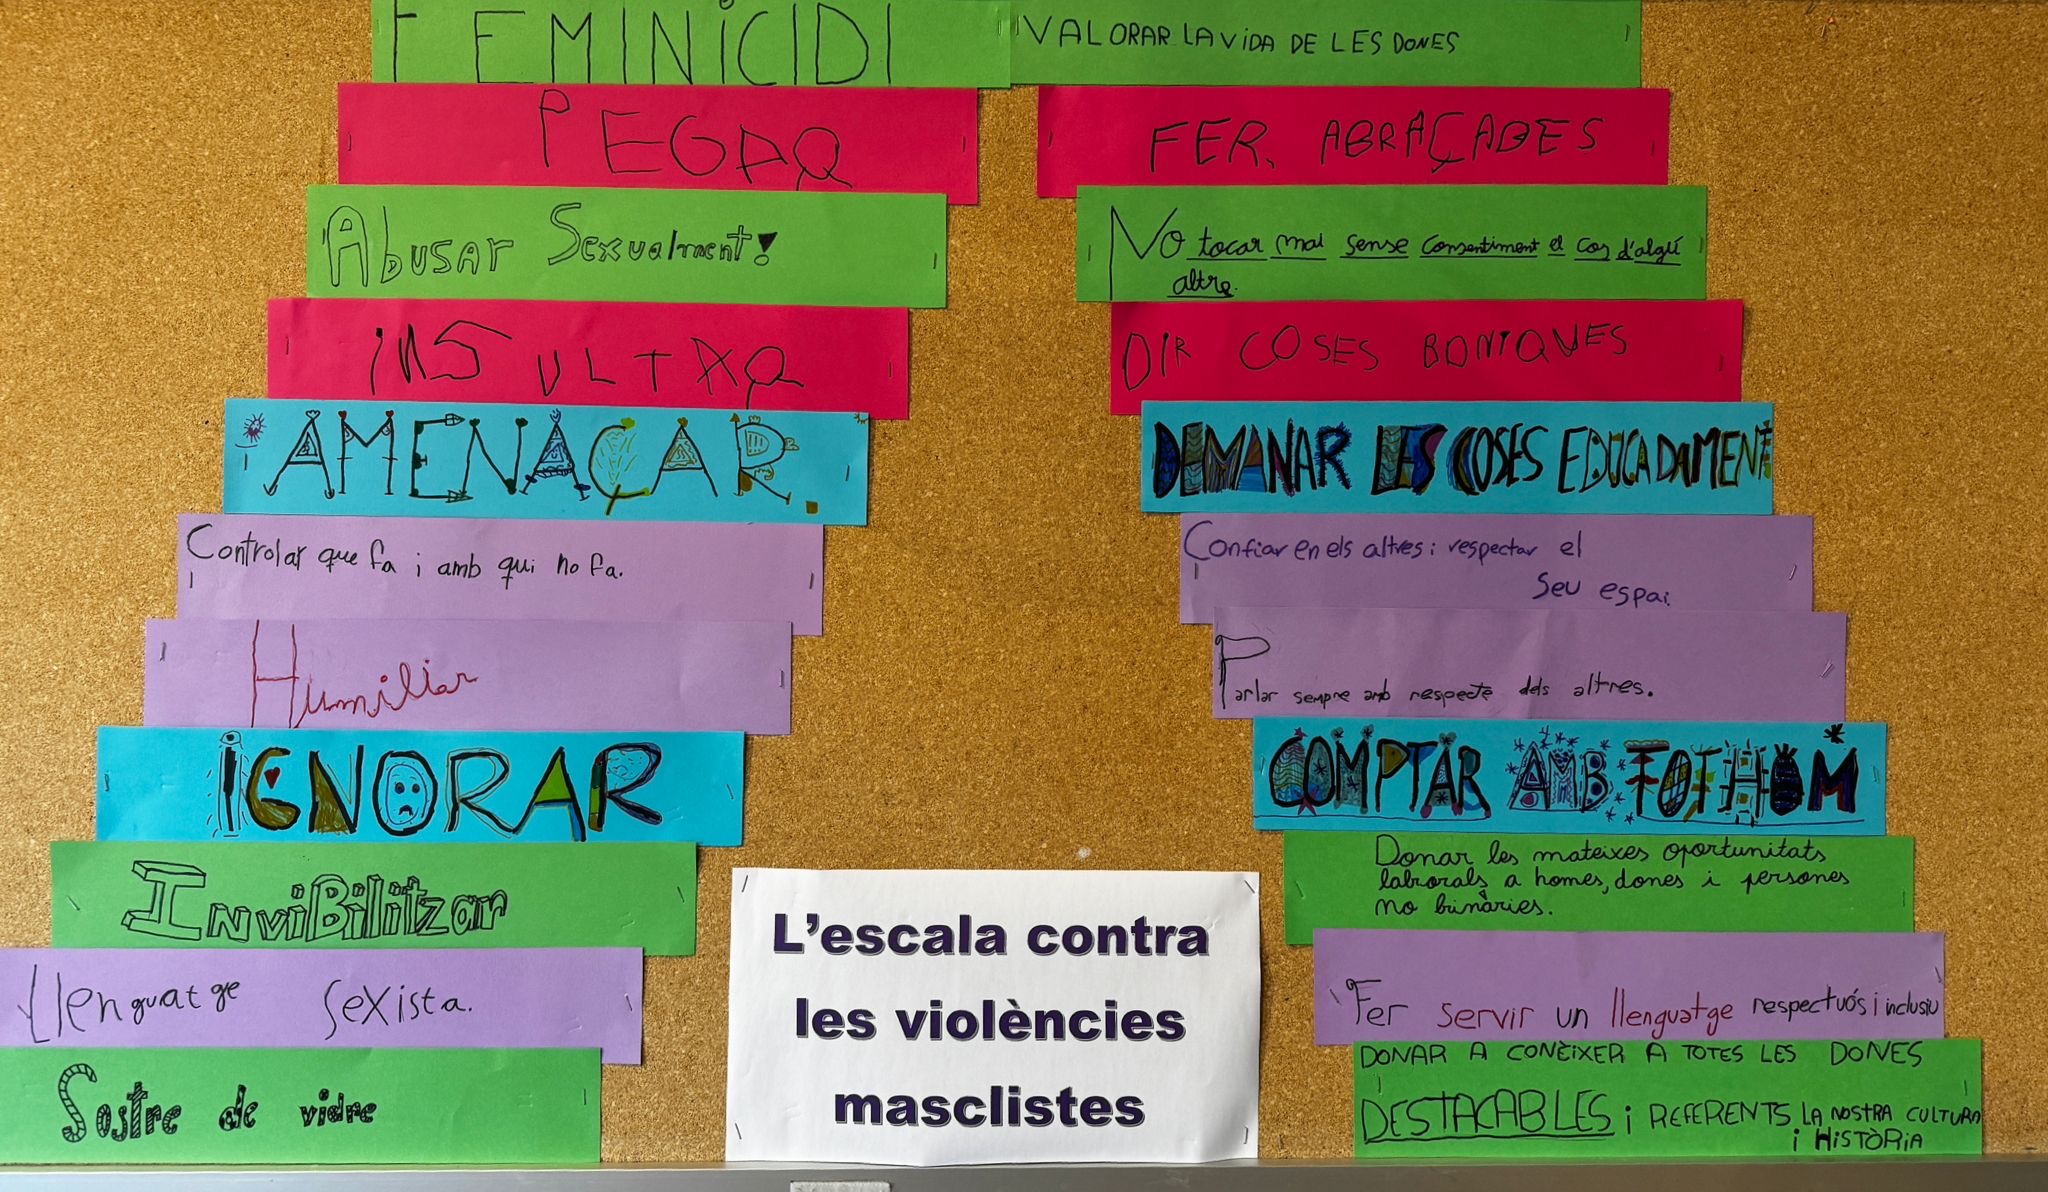 FEMINiCIDI
PEGAR
Abusar Sexualment!
iNSULTAR
AMENAÇAR.
Controlar que fa i amb qui no fa.
Humiliar
IGNORAR
InviBilitzar
Llenguatge sexista.
Sostre de vidre
VALORAR LA ViDA DE LES DONES
FER ABRAÇADES
No tocar mai sense consentiment el cos d'algú
altre.
DIR COSES BONIQUES
DEMANAR LES COSES EDUCADAMENT
Confiar en els altres i respectar el
seu espai.
Parlar sempre amb respecte dels altres.
COMPTAR AMB TOTHOM
Donar les mateixes oportunitats
laborals a homes, dones i persones
no binàries.
Fer servir un llenguatge respectuós i inclusiu
DONAR A CONÈIXER A TOTES LES DONES
DESTACABLES i REFERENTS LA NOSTRA CULTURA
i HiSTÒRiA
L'escala contra
les violències
masclistes